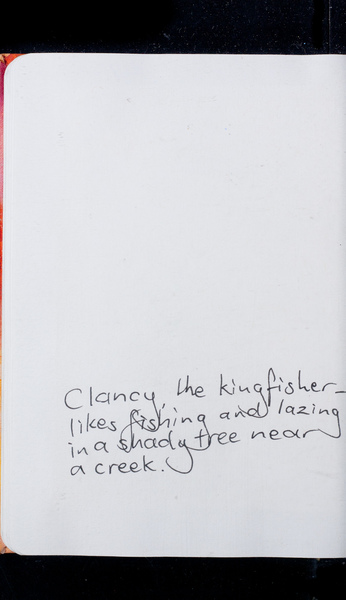 Clancy, the kingfisher-
likes fishing and lazing
in a shady tree near
a creek.